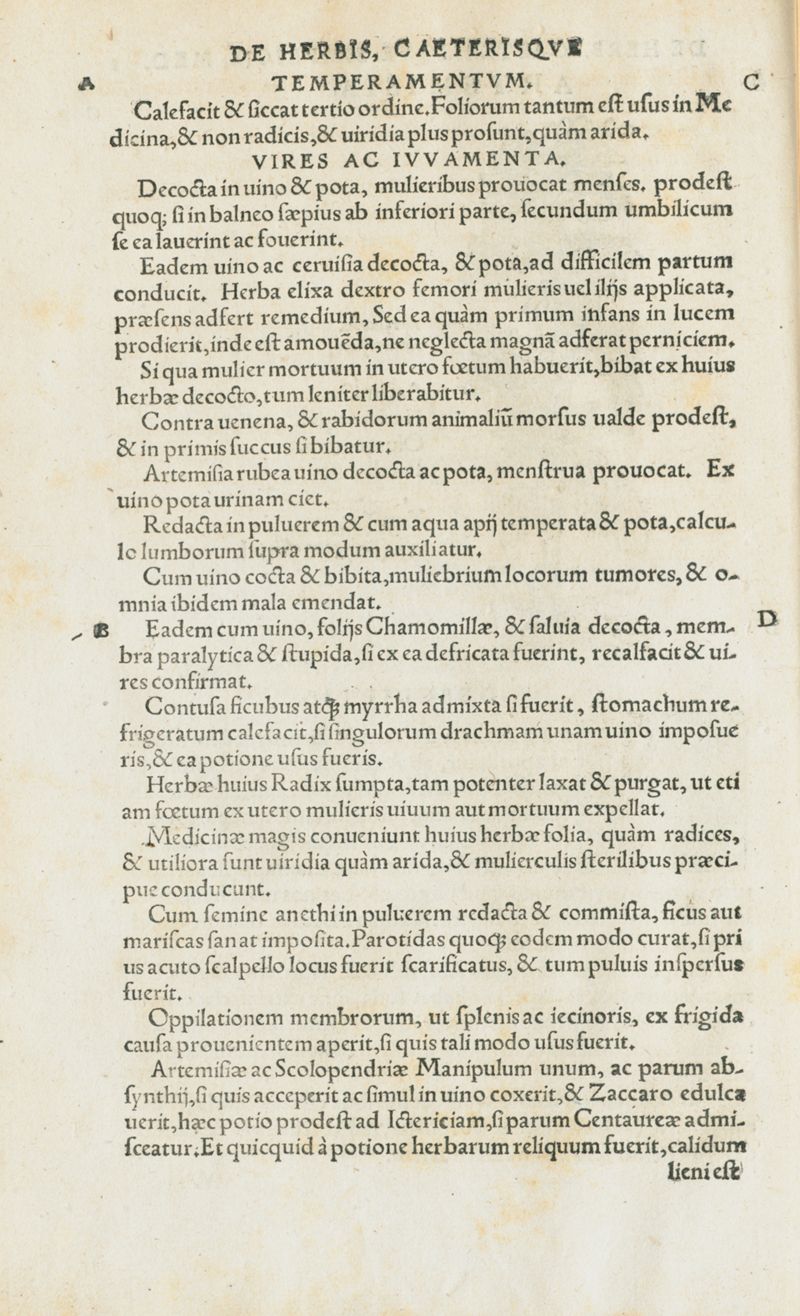 DE HERBIS, CAETERISQVE
A TEMPERAMENTVM. C
Calefacit & ſiccat tertio ordine. Foliorum tantum eſt uſus in Me
dicina, & non radicis, & uiridia plus proſunt, quàm arida.
VIRES AC IVVAMENTA.
Decocta in uino & pota, mulieribus prouocat menſes. prodeſt
quoq; ſi in balneo ſæpius ab inferiori parte, ſecundum umbilicum
ſe ea lauerint ac fouerint.
Eadem uino ac ceruiſia decocta, & pota, ad difficilem partum
conducit. Herba elixa dextro femori mulieris uel ilijs applicata,
præſens adfert remedium, Sed ea quàm primum infans in lucem
prodierit, inde eſt amouẽda, ne neglecta magnã adferat perniciem.
Si qua mulier mortuum in utero fœtum habuerit, bibat ex huius
herbæ decocto, tum leniter liberabitur.
Contra uenena, & rabidorum animaliũ morſus ualde prodeſt,
& in primis ſuccus ſi bibatur.
Artemiſia rubea uino decocta ac pota, menſtrua prouocat. Ex
uino pota urinam ciet.
Redacta in puluerem & cum aqua apij temperata & pota, calcu-
lo lumborum ſupra modum auxiliatur.
Cum uino cocta & bibita, muliebrium locorum tumores, & o-
mnia ibidem mala emendat.
B Eadem cum uino, folijs Chamomillæ, & ſaluia decocta, mem- D
bra paralytica & ſtupida, ſi ex ea defricata fuerint, recalfacit & ui-
res confirmat.
Contuſa ficubus atq; myrrha admixta ſi fuerit, ſtomachum re-
frigeratum calefacit, ſi ſingulorum drachmam unam uino impoſue
ris, & ea potione uſus fueris.
Herbæ huius Radix ſumpta, tam potenter laxat & purgat, ut eti
am fœtum ex utero mulieris uiuum aut mortuum expellat.
Medicinæ magis conueniunt huius herbæ folia, quàm radices,
& utiliora ſunt uiridia quàm arida, & mulierculis ſterilibus præci-
pue conducunt.
Cum ſemine anethi in puluerem redacta & commiſta, ficus aut
mariſcas ſanat impoſita. Parotidas quoq; eodem modo curat, ſi pri
us acuto ſcalpello locus fuerit ſcarificatus, & tum puluis inſperſus
fuerit.
Oppilationem membrorum, ut ſplenis ac iecinoris, ex frigida
cauſa prouenientem aperit, ſi quis tali modo uſus fuerit.
Artemiſiæ ac Scolopendriæ Manipulum unum, ac parum ab-
ſynthij, ſi quis acceperit ac ſimul in uino coxerit, & Zaccaro edulca
uerit, hæc potio prodeſt ad Ictericiam, ſi parum Centaureæ admi-
ſceatur. Et quicquid à potione herbarum reliquum fuerit, calidum
lieni eſt